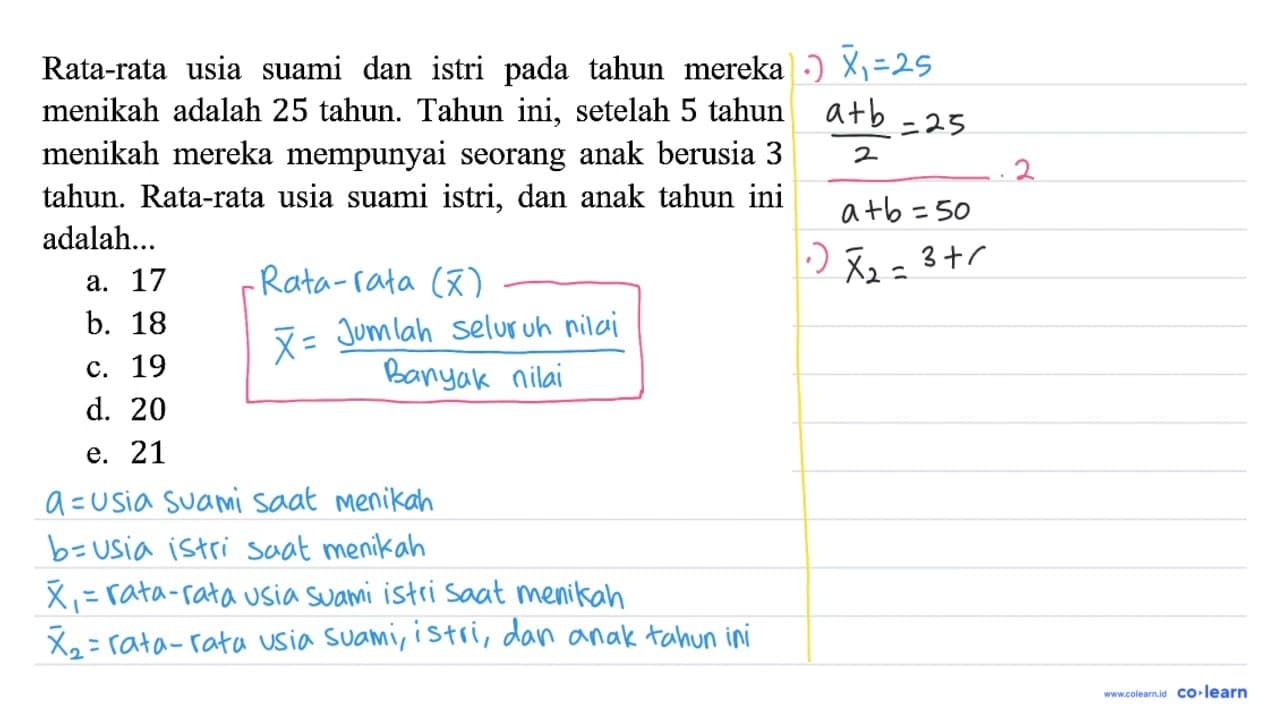 Rata-rata usia suami dan istri pada tahun mereka
menikah adalah 25 tahun. Tahun ini, setelah 5 tahun
menikah mereka mempunyai seorang anak berusia 3
tahun. Rata-rata usia suami istri, dan anak tahun ini
adalah...
a. 17
b. 18
c. 19
d. 20
e. 21
Rata-rata (x̄)
x̄ = Jumlah seluruh nilai
Banyak nilai
a = usia suami saat menikah
b = usia istri saat menikah
x̄₁ = rata-rata usia suami istri saat menikah
x̄₂ = rata-rata usia suami, istri, dan anak tahun ini
•) x̄₁ = 25
a+b
2
= 25
. 2
a+b = 50
•) x̄₂ = 3+
www.colearn.id co•learn